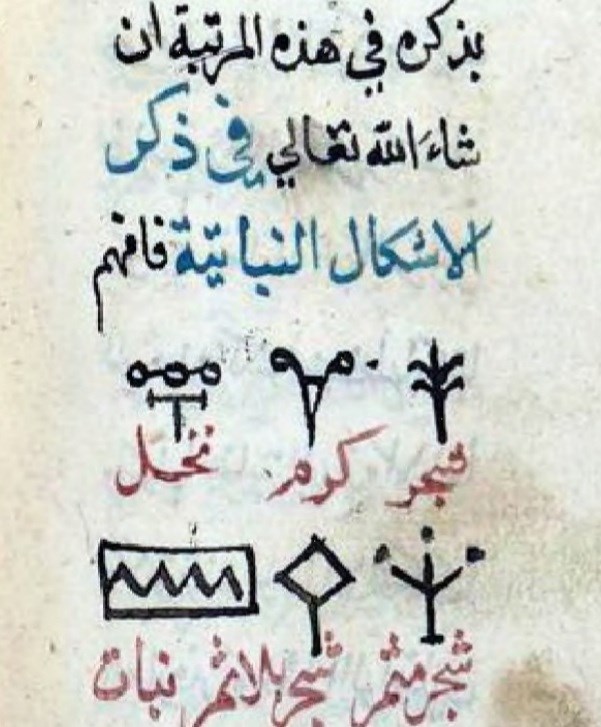 بذكره في هذه المرتبة ان
شاء الله تعالي في ذكر
الاشكال النباتية فافهم
شجر كرم نخل
شجر مثمر شجر بلا ثمر نبات